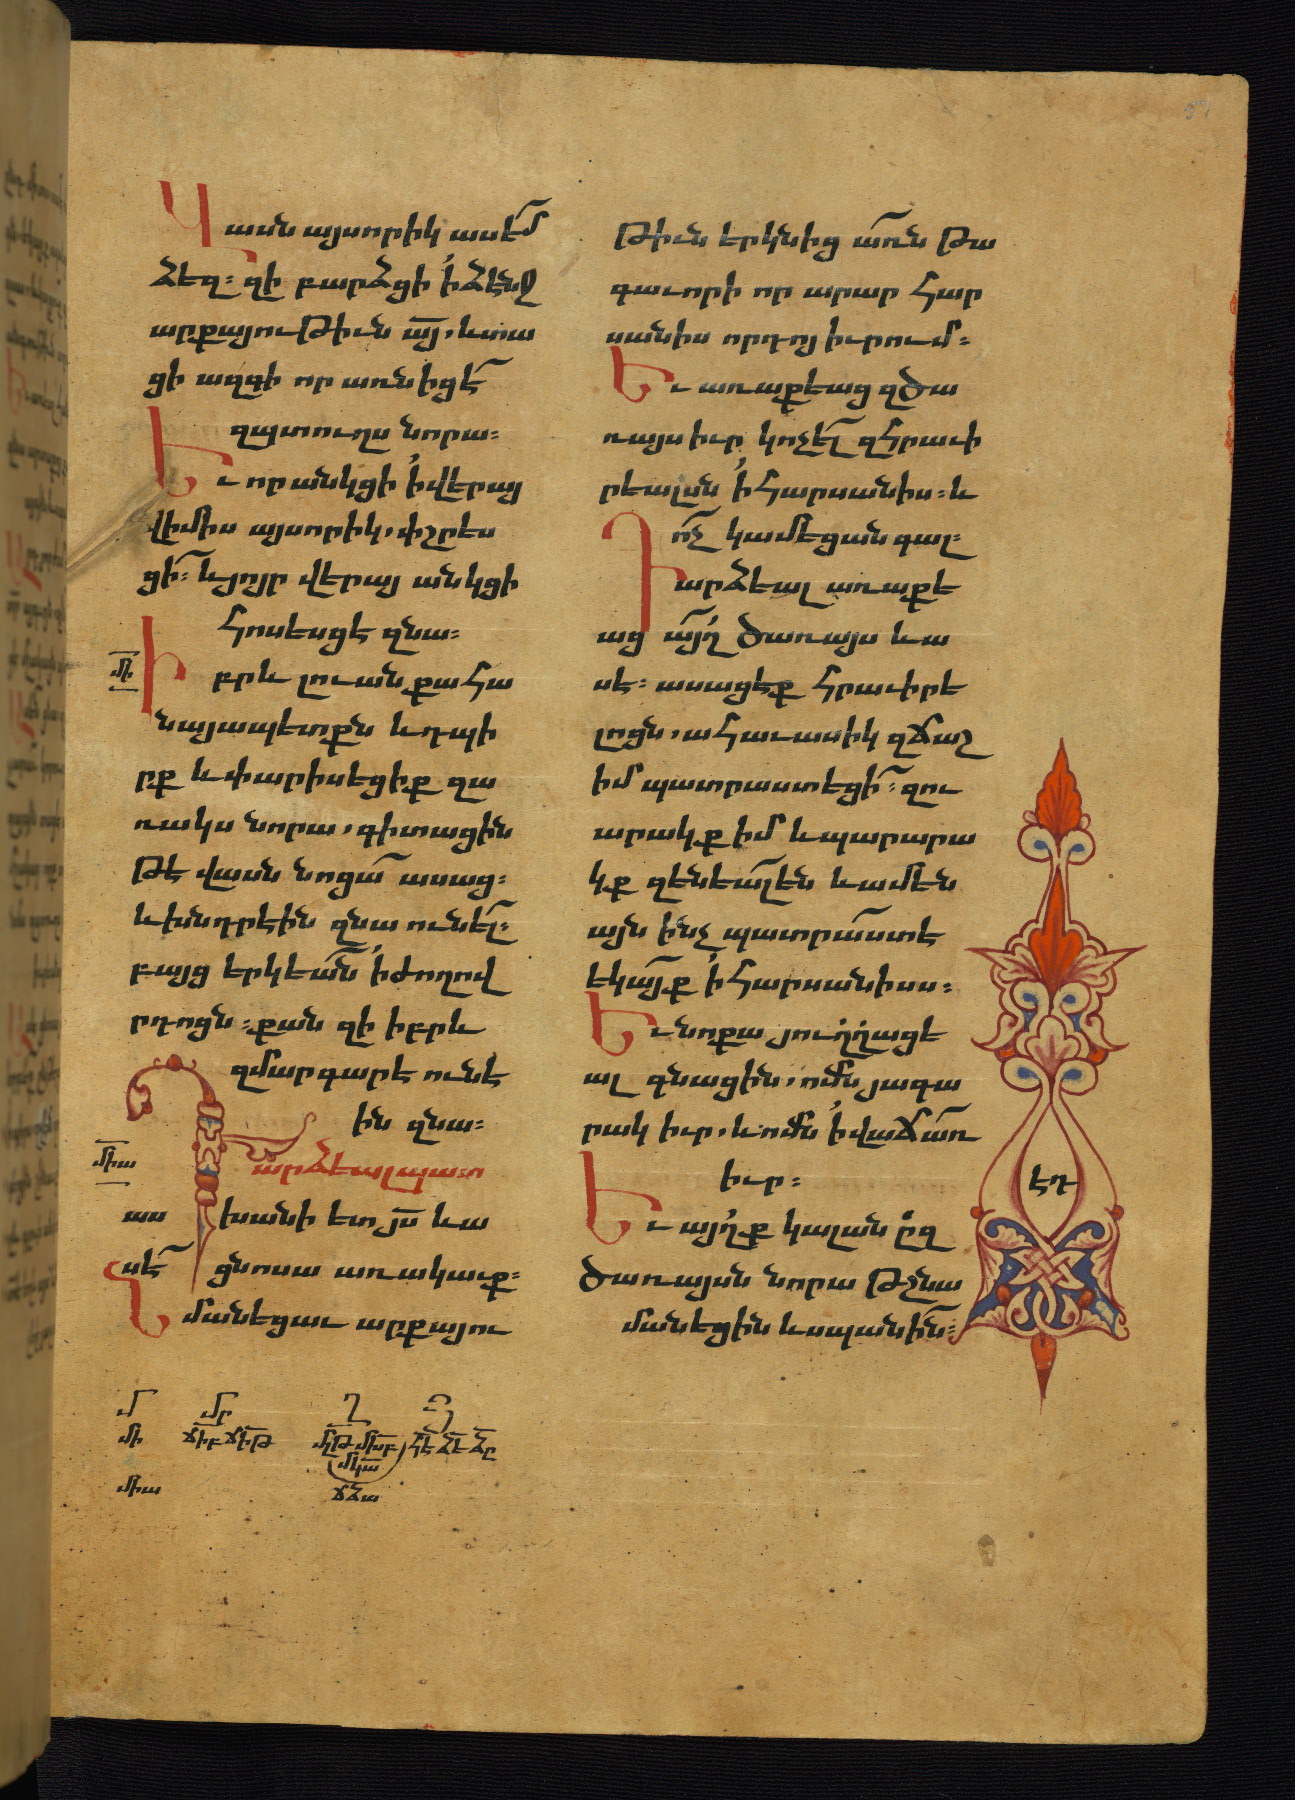 Վասն այսորիկ ասեմ
ձեզ։ զի բարձցի ՛ի ձէնջ
արքայութիւն ա՟յ, և տա
ցի ազգի որ առնիցէ
զպտուղս նորա։
Եւ որ անկցի ՛ի վերայ
վիմիս այսորիկ, փշրես
ցի։ և յոյր վերայ անկցի
հոսեսցէ զնա։
մի
Իբրև լուան քահա
նայապետքն և դպի
րք և փարիսեցիք զա
ռակս նորա, գիտացին
թէ վասն նոցա ասաց։
և խնդրէին զնա ունել։
բայց երկեան ՛ի ժողով
րդոցն։ քան զի իբրև
զմարգարէ ունէ
ին զնա։
միա
Դարձեալ պատ
ասխանի ետ յ՟ս և ա
սէ ցնոսա առակաւք։
Նմանեցաւ արքայու
թիւն երկնից առն թա
գաւորի որ արար հար
սանիս որդոյ իւրում։
Եւ առաքեաց զծա
ռայս իւր կոչել զհրաւի
րեալսն ՛ի հարսանիս։ և
ոչ կամեցան գալ։
Դարձեալ առաքե
աց այղ ծառայս և ա
սէ։ ասացէք հրաւիրե
լոցն, ահաւասիկ զճաշ
իմ պատրաստեցի։ զու
արակք իմ և պարարա
կք զենեալ են և ամեն
այն ինչ պատրաստ է
եկայք ՛ի հարսանիսս։
Եւ նոքա յուղղացե
ալ գնացին, ոմն յագա
րակ իւր, և ոմն ՛ի վաճառ
իւր։
Եւ այղք կալան ըզ
ծառայսն նորա թշնա
մանեցին և սպանին։
էդ
մ մր ղ
մի ճիբ ճիթ
միա ճձա